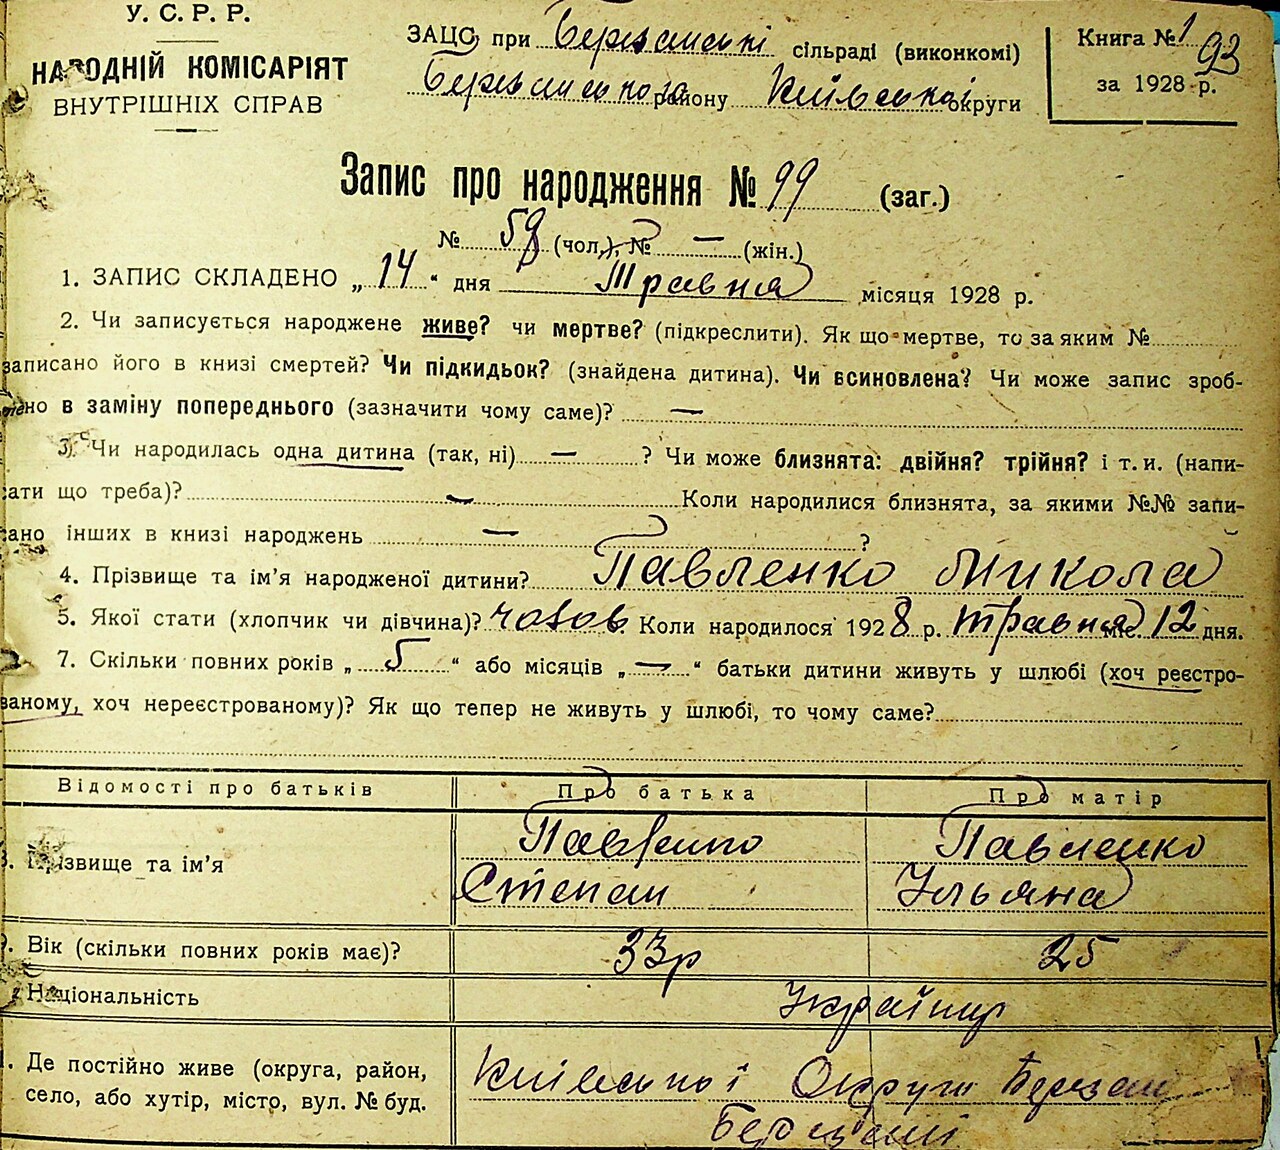 У. С. Р. Р.
НАРОДНІЙ КОМІСАРІЯТ
ВНУТРІШНІХ СПРАВ
ЗАЦС при Березанські сільраді (виконкомі)
Березанського району Київської округи
Книга № 1 93
за 1928 р.
Запис про народження № 99 (заг.)
№ 59 (чол.), № — (жін.)
1. ЗАПИС СКЛАДЕНО „14“ дня Травня місяця 1928 р.
2. Чи записується народжене живе? чи мертве? (підкреслити). Як що мертве, то за яким №
записано його в книзі смертей? Чи підкидьок? (знайдена дитина). Чи всиновлена? Чи може запис зроб-
лено в заміну попереднього (зазначити чому саме)? —
3. Чи народилась одна дитина (так, ні) — ? Чи може близнята: двійня? трійня? і т. и. (напи-
сати що треба)? — Коли народилися близнята, за якими №№ запи-
сано інших в книзі народжень — ?
4. Прізвище та ім’я народженої дитини? Павленко Микола
5. Якої стати (хлопчик чи дівчина)? чолов. Коли народилося 1928 р. травня міс. 12 дня.
7. Скільки повних років „ 5 “ або місяців „ — “ батьки дитини живуть у шлюбі (хоч реєстро-
ваному, хоч нереєстрованому)? Як що тепер не живуть у шлюбі, то чому саме?
Відомості про батьків Про батька Про матір
Прізвище та ім’я Павленко Степан Павленко Ульяна
Вік (скільки повних років має)? 33р 25
Національність Україн
Де постійно живе (округа, район,
село, або хутір, місто, вул. № буд.
Київської Округи Березан